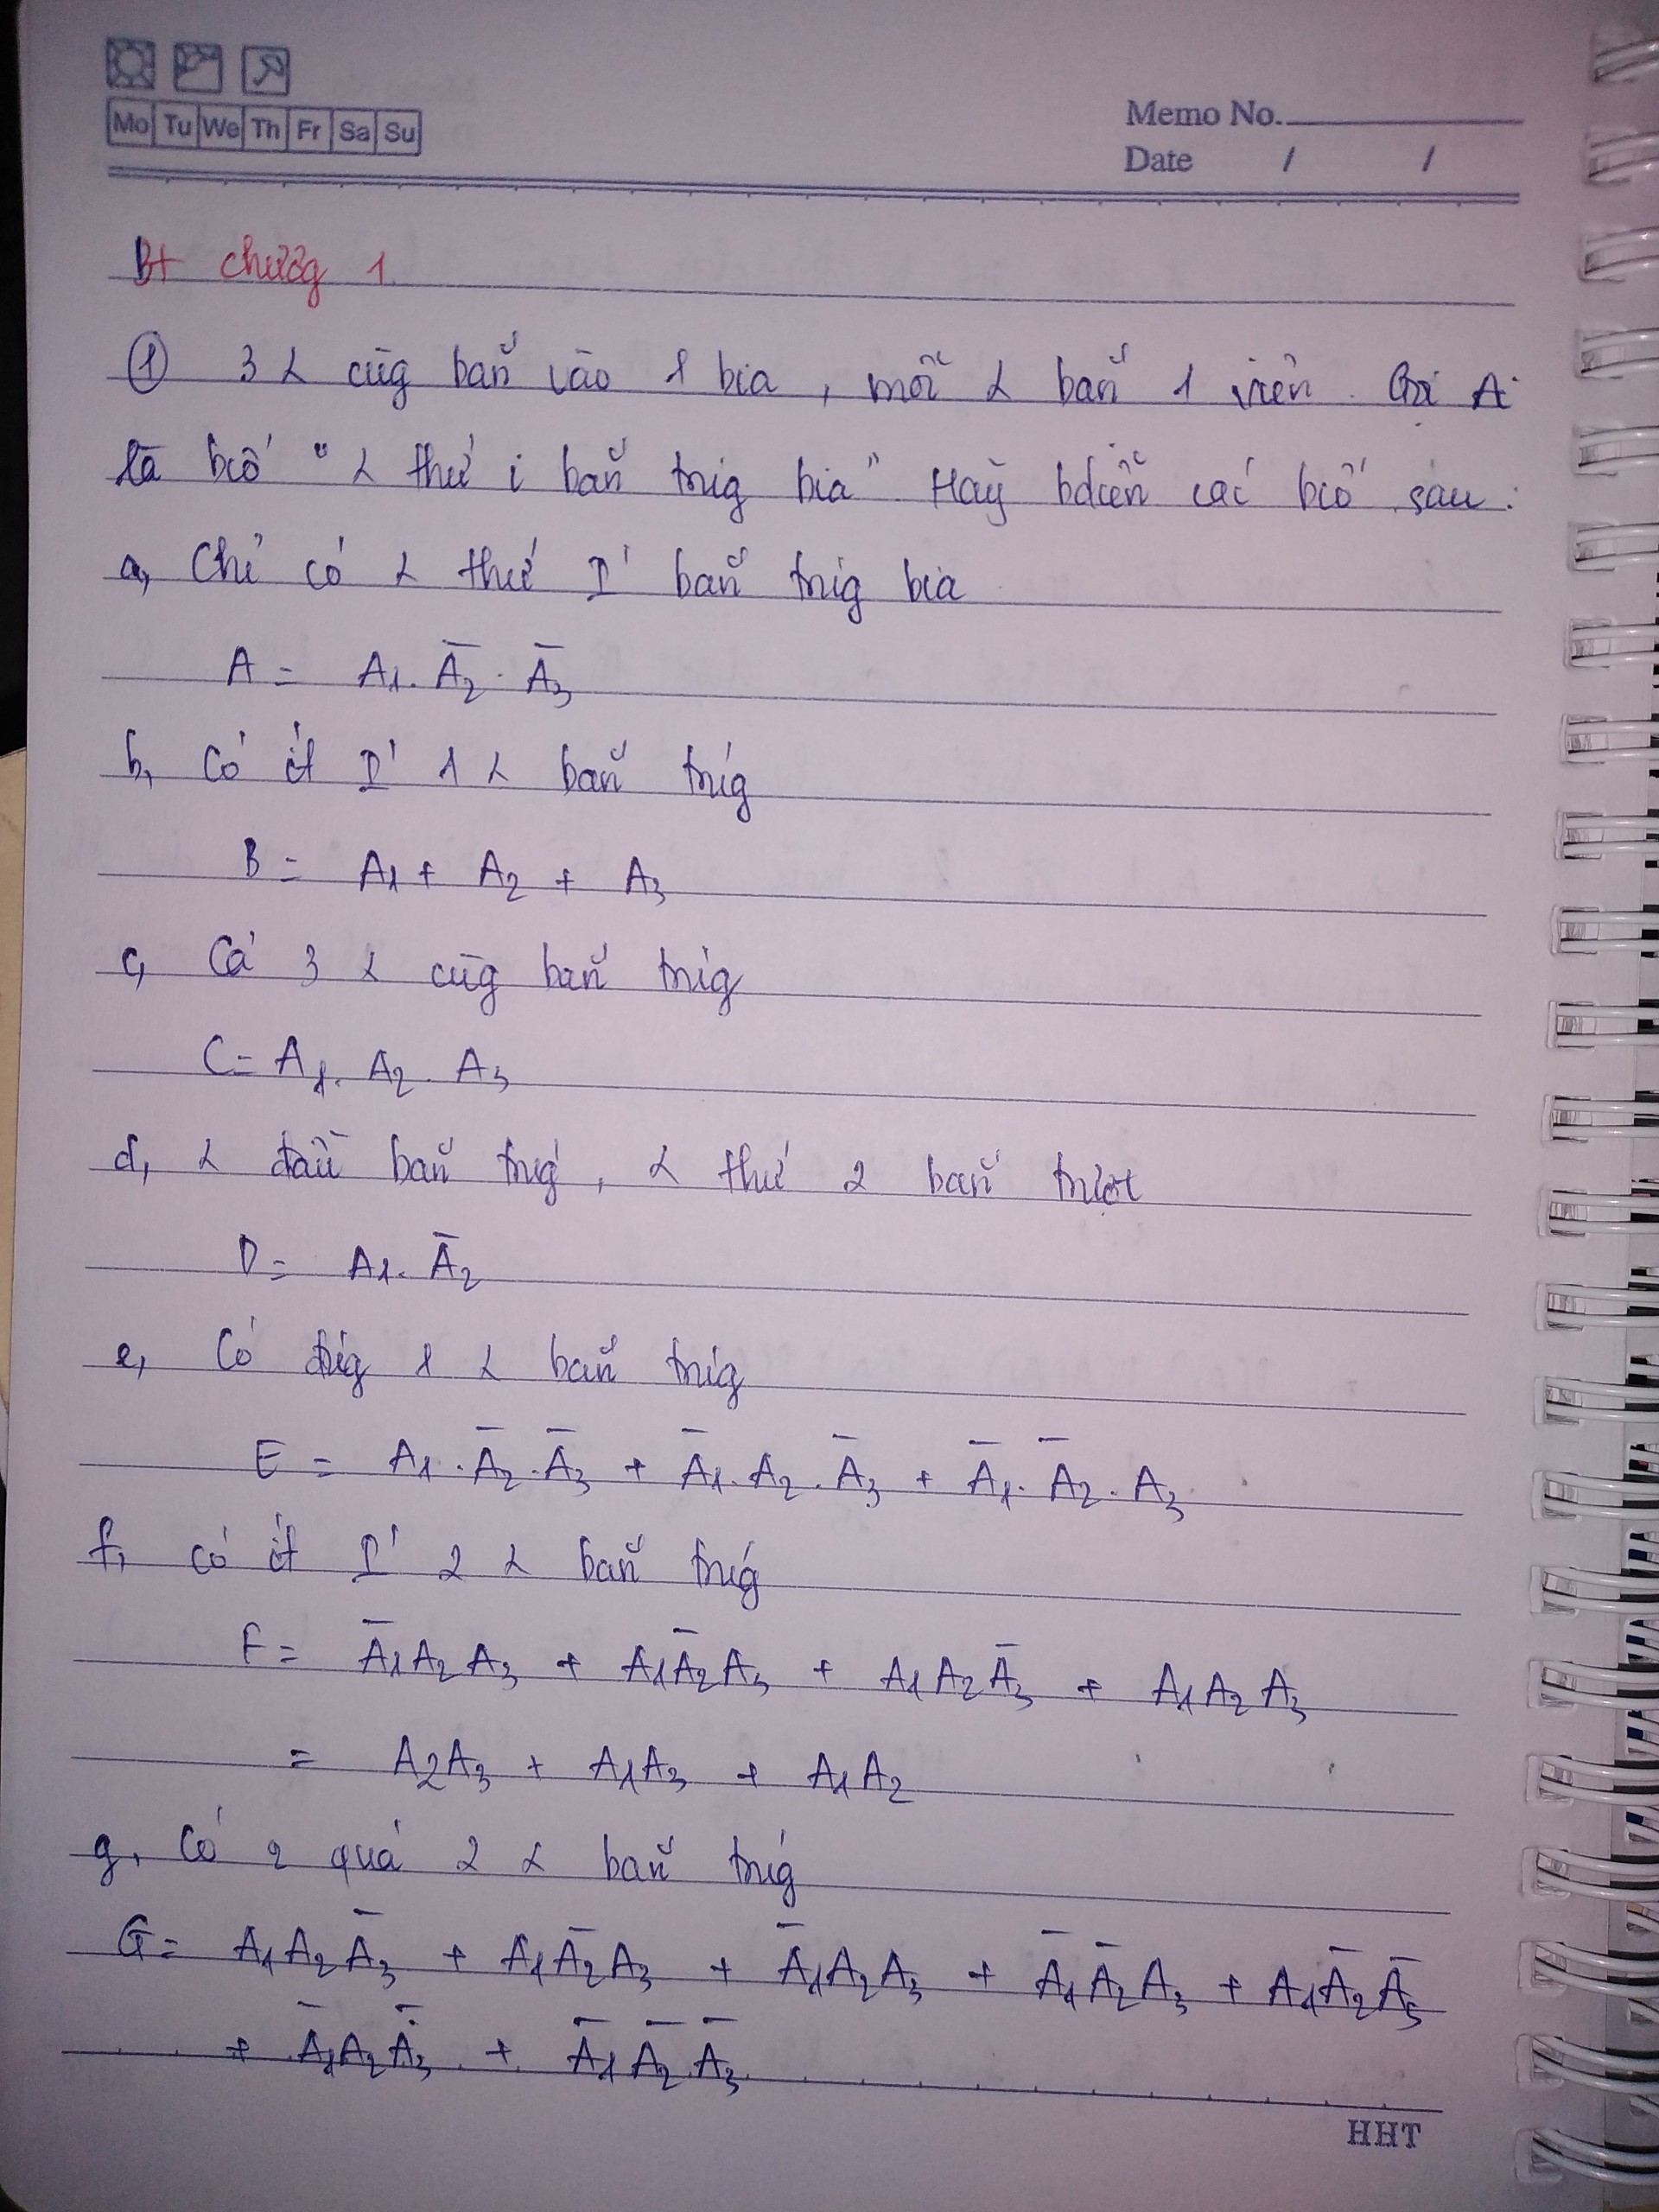 Mo Tu We Th Fr Sa Su
Memo No.
Date / /
Bt chương 1.
① 3 λ cùg bắn vào 1 bia, mỗi λ bắn 1 viên. Gọi Ai
là bcố "λ thứ i bắn trúg bia". Hãy bdiễn các bcố sau:
a, Chỉ có λ thứ I' bắn trúg bia
A = A₁. A̅₂ . A̅₃
b, Có ít I' 1 λ bắn trúg
B = A₁ + A₂ + A₃
c, Cả 3 λ cùg bắn trúg
C = A₁. A₂ . A₃
d, λ đầu bắn trúg, λ thứ 2 bắn trượt
D = A₁. A̅₂
e, Có đúg 1 λ bắn trúg
E = A₁ . A̅₂ . A̅₃ + A̅₁. A₂ . A̅₃ + A̅₁. A̅₂ . A₃
f, có ít I' 2 λ bắn trúg
F = A̅₁A₂A₃ + A₁A̅₂A₃ + A₁A₂A̅₃ + A₁A₂A₃
= A₂A₃ + A₁A₃ + A₁A₂
g, Có quá 2 λ bắn trúg
G = A₁A₂A̅₃ + A₁A̅₂A₃ + A̅₁A₂A₃ + A̅₁A̅₂A₃ + A₁A̅₂A̅₃
+ A̅₁A₂A̅₃ + A̅₁A̅₂A̅₃
HHT